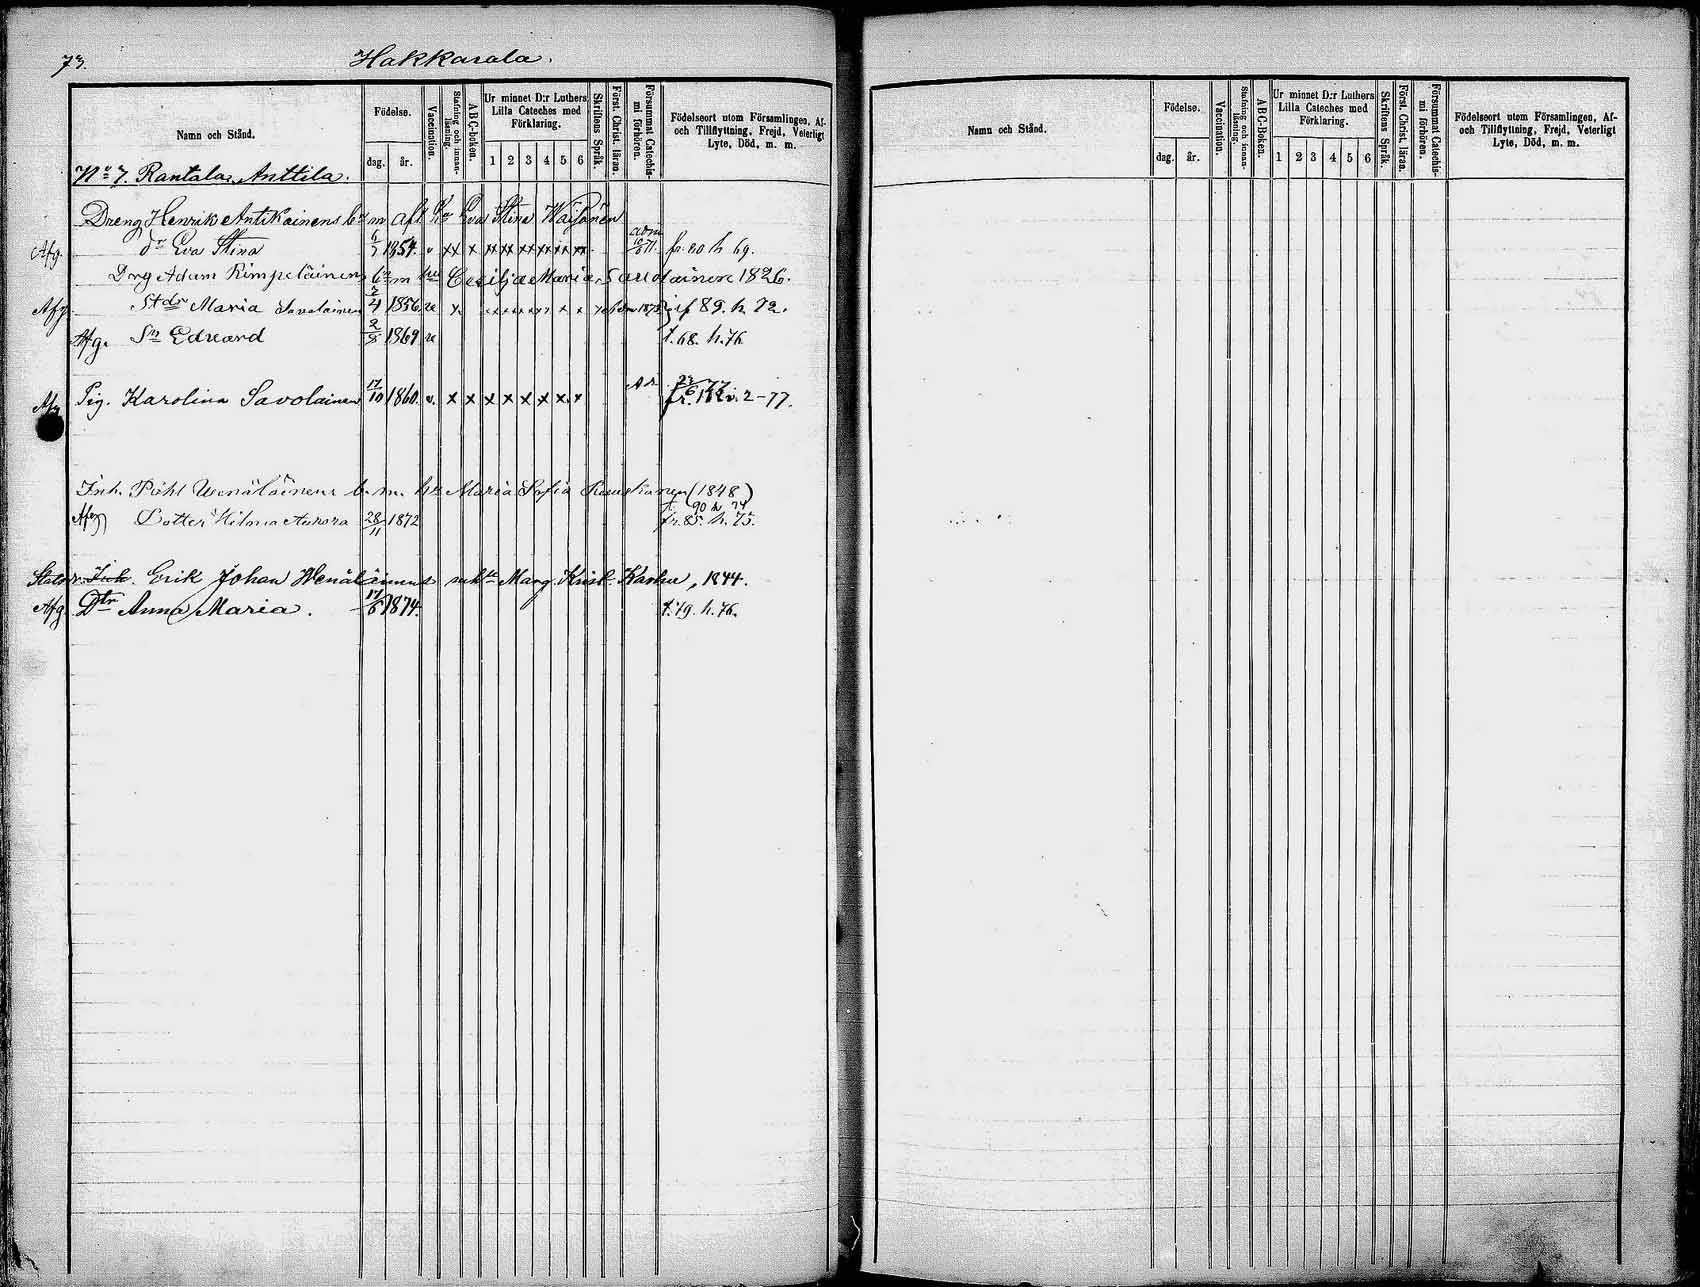 73. Hakkarala.
Namn och Stånd.
Födelse.
dag. år.
Vaccination.
Stafning och innanläsning.
A B C-boken.
Ur minnet D:r Luthers Lilla Cateches med Förklaring.
1 2 3 4 5 6
Skriftens Språk.
Först. Christ. läran.
Försummat Catechismi förhören.
Födelseort utom Församlingen, Af- och Tillflyttning, Frejd, Veterligt Lyte, Död, m. m.
No 7. Rantala, Anttila.
Dreng Henrik Antikainens Eva Stina
Afg. dr Eva Stina 6/7 1854. v xx x xx xx xx xx xx xx adm 71. fr. 80 h 69.
Drg Adam Rimpeläinens m hu Cecilja Maria Savolainen 1826.
Afg Stdr Maria Savolainen 7/4 1856 89. h. 72.
Afg. Sn Edvard 2/5 1869 t. 68. h. 76
Afg Pig. Karolina Savolainen 17/10 1860. v. x x x x x x x x 2-77.
Inh. Påhl Wenäläinens Maria Sofia (1848)
Afg Dotter Hilma Aurora 28/11 1872 t 90 h 74
fr. 85. h. 75.
Inh. Erik Johan Wenäläinens Marg. Krist. 1844.
Afg. Dtr Anna Maria. 17/6 1874. t. 79. h. 76.
Namn och Stånd.
Födelse.
dag. år.
Vaccination.
Stafning och innanläsning.
A B C-Boken.
Ur minnet D:r Luthers Lilla Cateches med Förklaring.
1 2 3 4 5 6
Skriftens Språk.
Först. Christ. läran.
Försummat Catechismi förhören.
Födelseort utom Församlingen, Af- och Tillflyttning, Frejd, Veterligt Lyte, Död, m. m.